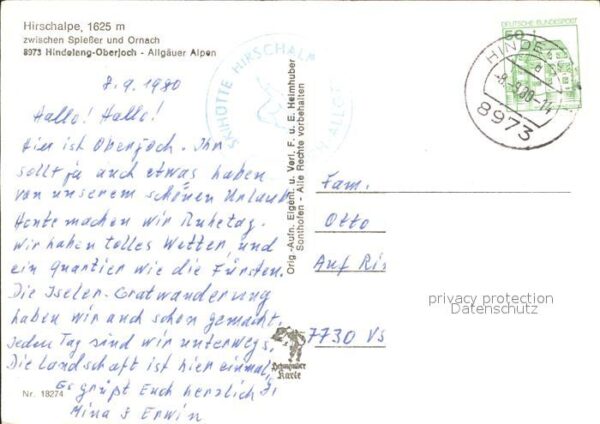 Hirschalpe, 1625 m
zwischen Spießer und Ornach
8973 Hindelang-Oberjoch - Allgäuer Alpen
8.9.1980
Hallo! Hallo!
Hier ist Oberjoch. Ihr
sollt ja auch etwas haben
von unserem schönen Urlaub
Heute machen wir Ruhetag.
Wir haben tolles Wetter, und
ein Quartier wie die Fürsten.
Die Iseler-Gratwanderung
haben wir auch schon gemacht,
jeden Tag sind wir unterwegs.
Die Landschaft ist hier einmalig
Es grüßt Euch herzlich
Mina & Erwin
Nr. 18274
SKIHÜTTE HIRSCHALPE
Orig.-Aufn. Eigent. u. Verl. F. u. E. Heimhuber
Sonthofen - Alle Rechte vorbehalten
Heimhuber
Karte
DEUTSCHE BUNDESPOST
50
HINDEL
-8.-9.80-14
8973
Fam.
Otto
Auf Ri
7730 VS
privacy protection
Datenschutz